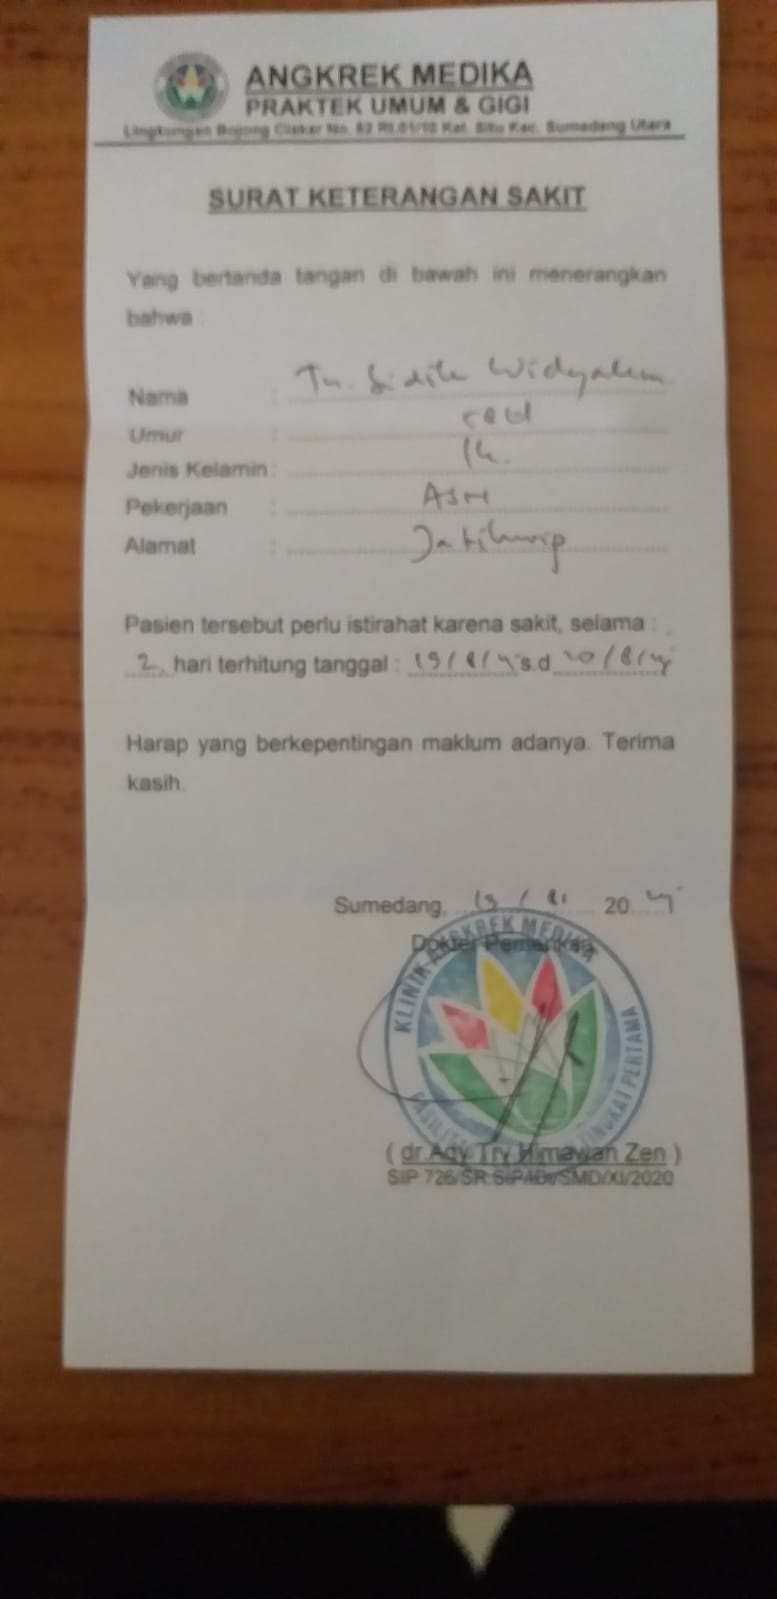 ANGKREK MEDIKA
PRAKTEK UMUM & GIGI
Lingkungan Bojong Ciakar No. Kel. Situ Kec. Sumedang Utara
SURAT KETERANGAN SAKIT
Yang bertanda tangan di bawah ini menerangkan
bahwa :
Nama : Tn. Sidik
Umur :
Jenis Kelamin : lk.
Pekerjaan : ASN
Alamat : Jatihurip
Pasien tersebut perlu istirahat karena sakit, selama :
2 hari terhitung tanggal : 19/8/ s.d 20/8/
Harap yang berkepentingan maklum adanya. Terima
kasih.
Sumedang, 19 / 8 20
Dokter Pemeriksa
KLINIK ANGKREK MEDIKA
TINGKAT PERTAMA
( dr Ady Try Himawan Zen )
SIP 726/SR SIP/IDI/SMD/XI/2020